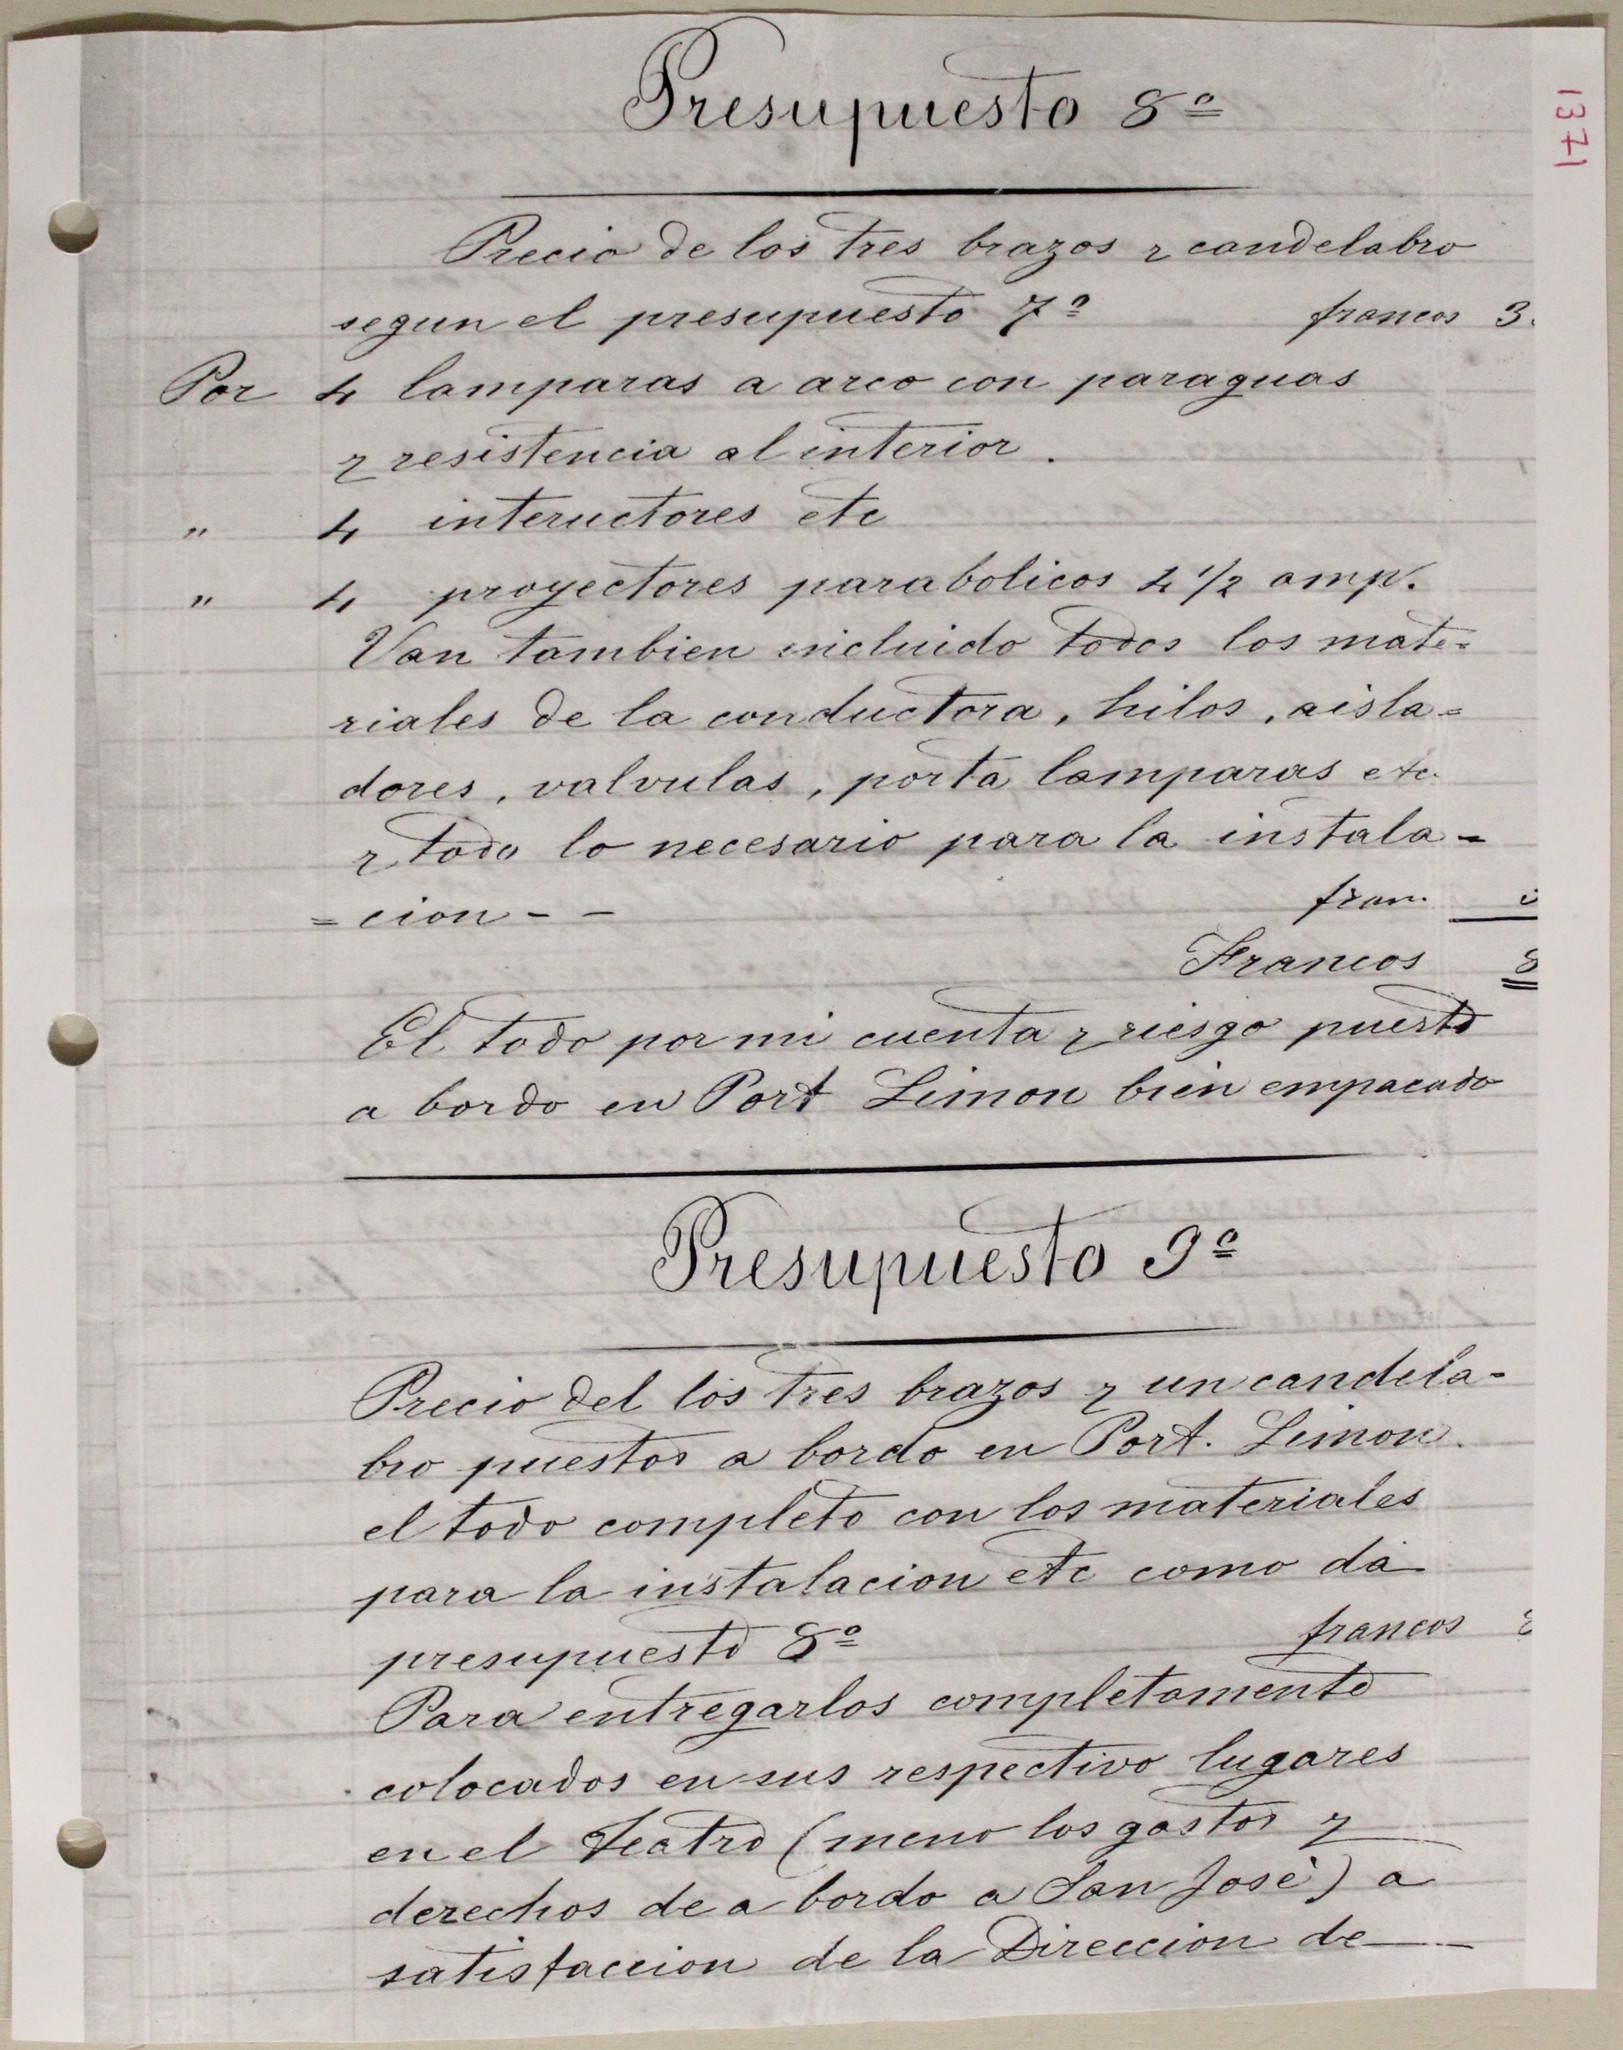 1371
Presupuesto 8º
Precio de los tres brazos y candelabro
segun el presupuesto 7º francos 3.
Por 4 lamparas a arco con paraguas
y resistencia al interior.
" 4 inteructores etc
" 4 proyectores parabolicos 4 1/2 amp.
Van tambien incluido todos los mate-
riales de la conductora, hilos, aisla=
dores, valvulas, porta lamparas etc.
y todo lo necesario para la instala-
=cion - - fran.
Francos 8
El todo por mi cuenta y riesgo puesto
a bordo en Port Limon bien empacado
Presupuesto 9º
Precio del los tres brazos y un candela-
bro puestos a bordo en Port. Limon.
el todo completo con los materiales
para la instalacion etc como da
presupuesto 8º francos
Para entregarlos completamente
colocados en sus respectivo lugares
en el Teatro (meno los gastos y
derechos de a bordo a San José) a
satisfaccion de la Direccion de